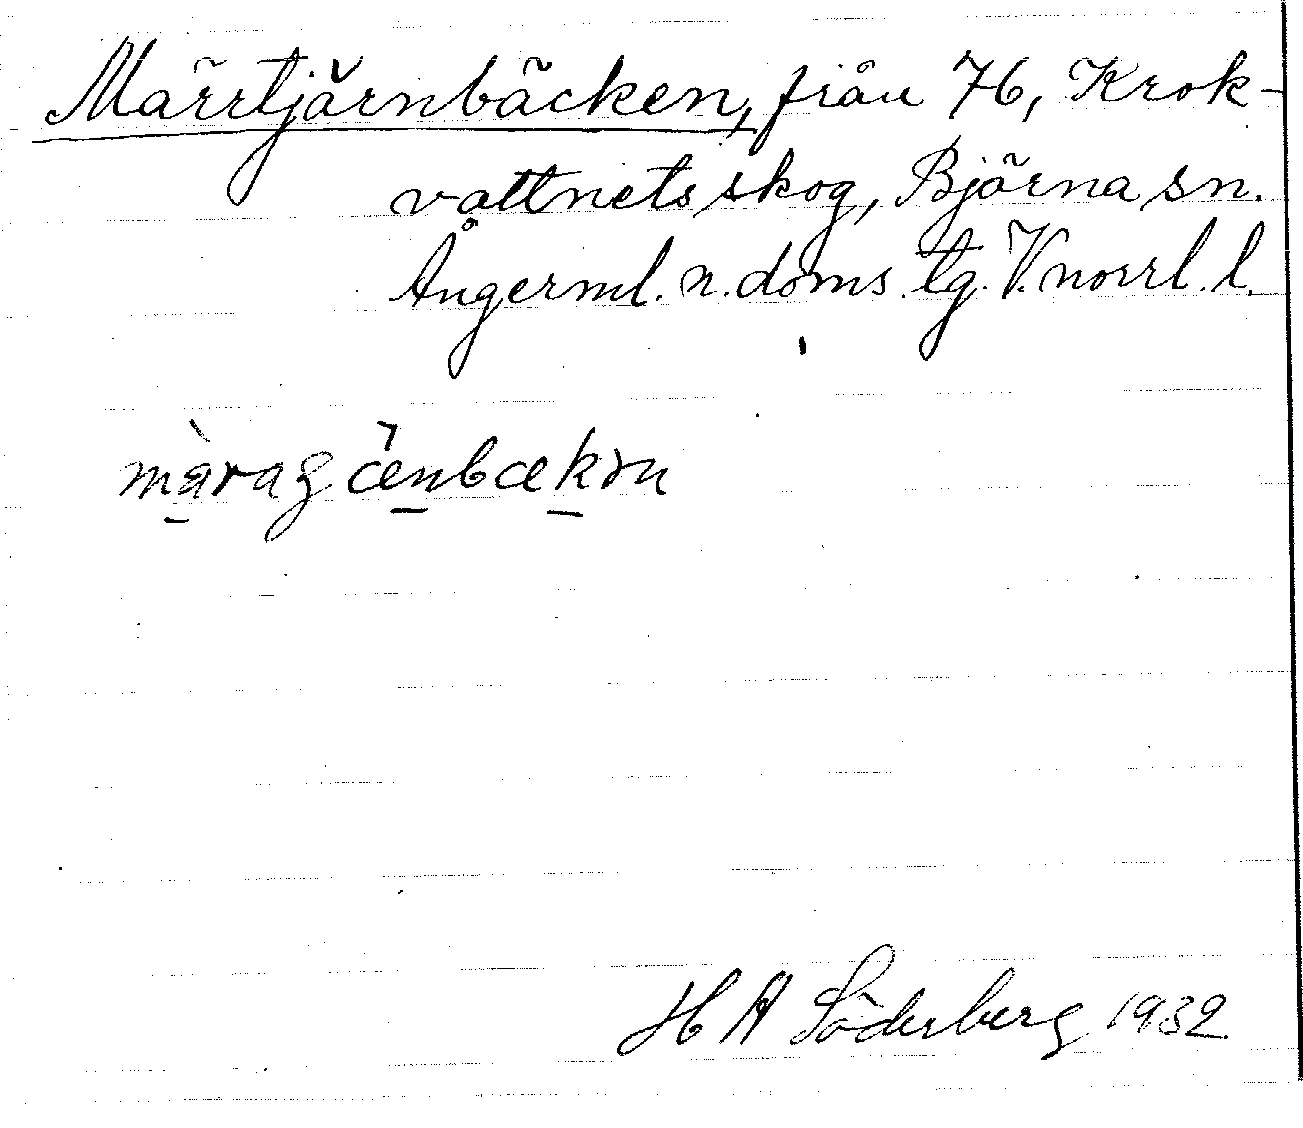 Märrtjärnbäcken, från 76, Krok-
vattnets skog, Björna sn.
Ångerml. n. doms. tg. V. norrl. l.
H A Söderberg 1932